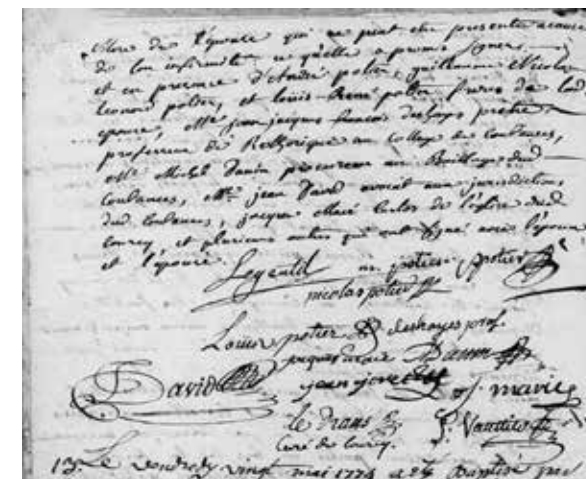 mere de l'epouse qui ne peut etre presente a cause
de son infirmité ce qu'elle a promis signer
et en presence d'André potier, guillaume Nicolas
Leonor potier, et louis René potier freres de lad.
epouse, Mr jean jacques francois deshayes pretre
professeur de Rethorique au college de Coutances,
Mr Michel Danin procureur au Bailliage dud
Coutances, Mr jean David avocat aux jurisdictions
dud. Coutances, jacque Marié custos de l'église dud
courcy, et plusieurs autres qui ont signé avec l'epoux
et l'epouse
Legentil m. potier potier
nicolas potier
Louis potier deshayes prof.
jacques Danin
David jean j. marie
le Brans
Curé de Courcy.
13. Le vendredy vingt mai 1774 a eté Baptisé par